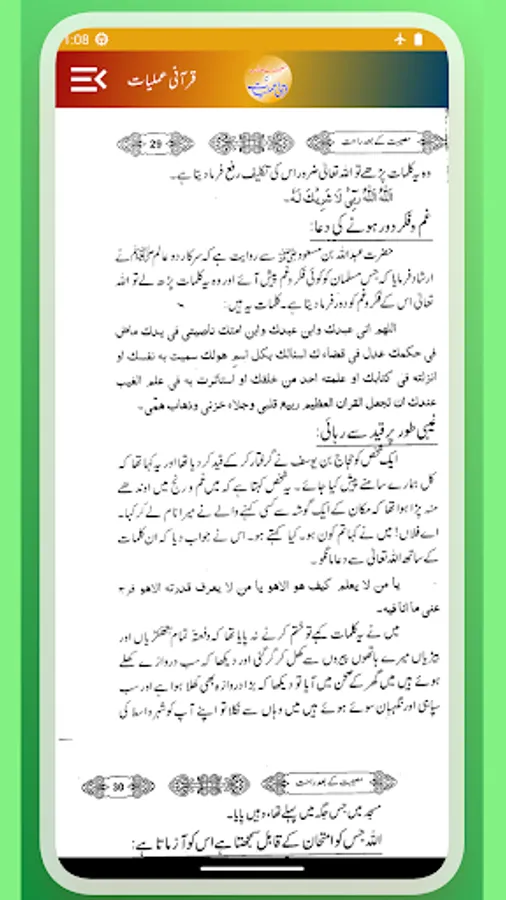 1:08
قرآنی عملیات
29
مصیبت کے بعد راحت
وہ یہ کلمات پڑھے تو اللہ تعالیٰ ضرور اس کی تکلیف رفع فرما دیتا ہے۔
اَللهُ اَللهُ رَبِّیْ لَا شَرِیْكَ لَهٗ۔
غم و فکر دور ہونے کی دعا:
حضرت عبداللہ بن مسعودؓ سے روایت ہے کہ سرکار دو عالم ﷺ نے
ارشاد فرمایا کہ جس مسلمان کو کوئی فکر و غم پیش آئے اور وہ یہ کلمات پڑھ لے تو اللہ
تعالیٰ اس کے فکر و غم کو دور فرما دیتا ہے۔ کلمات یہ ہیں:
اللهم انى عبدك وابن عبدك وابن امتك ناصيتى فى يدك ماض
فى حكمك عدل فى قضاءك اسئالك بكل اسم هولك سميت به نفسك او
انزلته فى كتابك او علمته احد من خلقك او استاثرت به فى علم الغيب
عندك ان تجعل القران العظيم ربيع قلبى وجلاء حزنى وذهاب همى۔
غیبی طور پر قید سے رہائی:
ایک شخص کو حجاج بن یوسف نے گرفتار کر کے قید کر دیا تھا اور یہ کہا تھا کہ
کل ہمارے سامنے پیش کیا جائے۔ یہ شخص کہتا ہے کہ میں غم و رنج میں اوندھے
منہ پڑا ہوا تھا کہ مکان کے ایک گوشہ سے کسی کہنے والے نے میرا نام لے کر کہا۔
اے فلاں! میں نے کہا تم کون ہو۔ کیا کہتے ہو۔ اس نے جواب دیا کہ ان کلمات
کے ساتھ اللہ تعالیٰ سے دعا مانگو۔
يا من لا يعلم كيف هو الاهو يا من لا يعرف قدرته الاهو فرج
عنى ما انا فيه۔
میں نے یہ کلمات کہے تو ختم کرنے نہ پایا تھا کہ دفعۃً تمام ہتھکڑیاں اور
بیڑیاں میرے ہاتھوں پیروں سے کھل کر گر گئی اور دیکھا کہ سب دروازے کھلے
ہوئے ہیں میں گھر کے صحن میں آیا تو دیکھا کہ بڑا دروازہ بھی کھلا ہوا ہے اور سب
سپاہی اور نگہبان سوئے ہوئے ہیں میں وہاں سے نکلا تو اپنے آپ کو شہر واسط کی
30
مصیبت کے بعد راحت
مسجد میں جس جگہ میں پہلے تھا، وہیں پایا۔
اللہ جس کو امتحان کے قابل سمجھتا ہے اس کو آزماتا ہے: